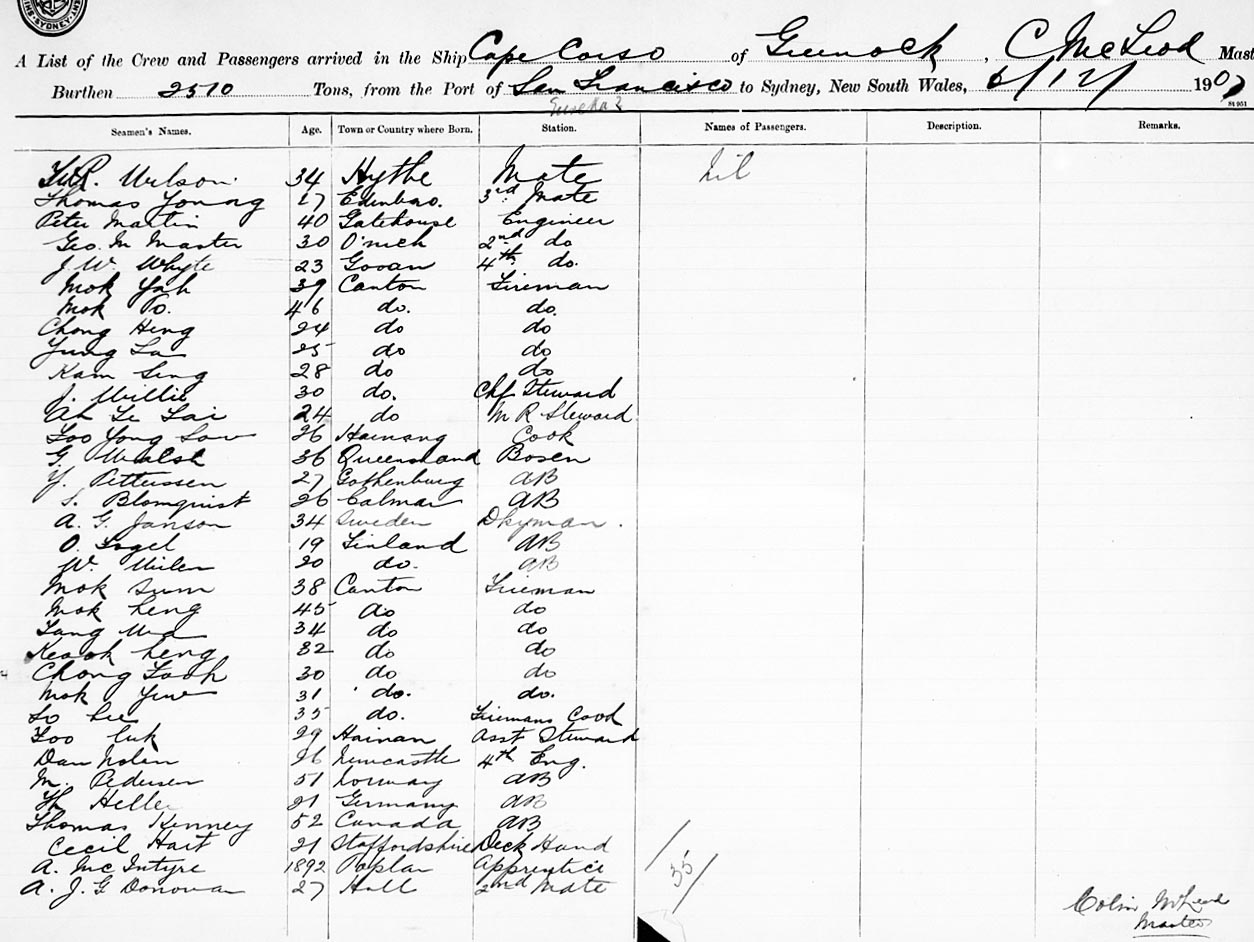 SYDNEY
A List of the Crew and Passengers arrived in the Ship Cape Corso of Greenock, C McLeod Mast
Burthen 2510 Tons, from the Port of San Francisco to Sydney, New South Wales, 6/12/ 1907
Eureka
Seamen's Names. Age. Town or Country where Born. Station. Names of Passengers. Description. Remarks.
Wilson 34 Hythe Mate Nil
Thomas Young 27 Edinboro. 3rd Mate
Peter Martin 40 Gatehouse Engineer
Geo. M Master 30 2nd do
J. W. Whyte 23 Govan 4th do.
Mok Yah 39 Canton Fireman
Mok Po. 46 do. do.
Chong Hing 24 do do
Yung 25 do do
Kam Sing 28 do do
J. Willie 30 do. Chf Steward
Ah Le Lai 24 do M R Steward
Loo Yong Low 26 Hainang Cook
G. Walsh 36 Queensland Bosen
Y. Pettersen 27 Gothenburg AB
S. Blomquist 26 Calmar AB
A. G. Janson 34 Sweden Dkyman.
O. 19 Finland AB
W. 20 do. AB
Mok Sum 38 Canton Fireman
Mok Leng 45 do do
34 do do
Leng 32 do do
Chong 30 do do
Mok Yew 31 do. do.
So Lee 35 do. Firemans Cook
Loo Luk 29 Hainan Asst Steward
Dan Nolan 26 Newcastle 4th Eng.
M. Pedersen 51 Norway AB
Heller 21 Germany AB
Thomas Kenney 52 Canada AB
Cecil Hart 21 Staffordshire Deck Hand
A. McIntyre 1892 Poplar Apprentice
A. J. G Donovan 27 Hull 2nd Mate
/35/
Colin McLeod
Master